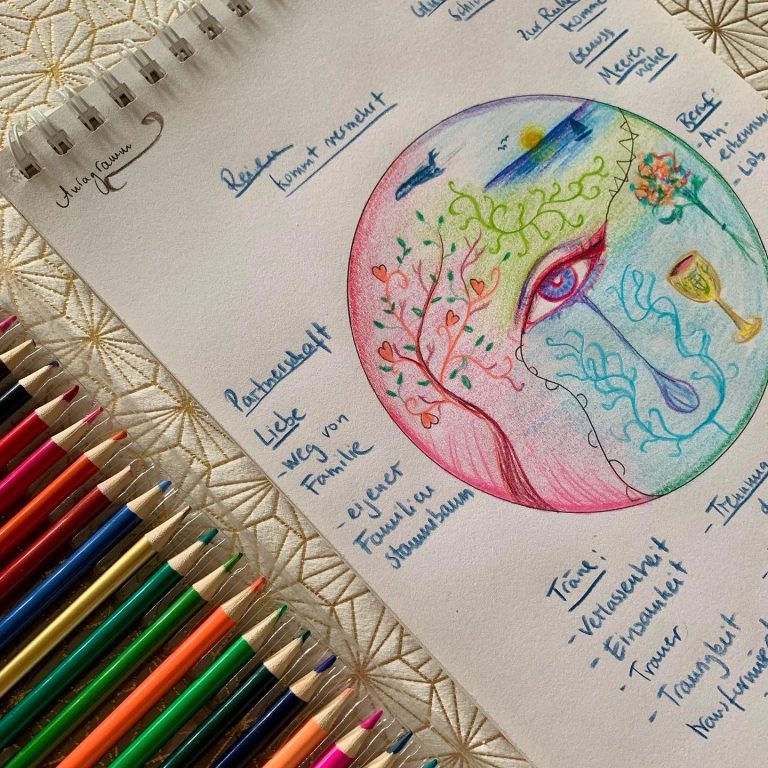 Auragramm
Reisen
kommt vermehrt
zur Ruhe
kommen
Genuss
Meeres
nähe
Beruf:
- An-
erkennung
- Lob
Partnerschaft
Liebe
- weg von
Familie
- eigener
Familien
stammbaum
Träne:
- Verlassenheit
- Einsamkeit
- Trauer
- Traurigkeit
- Trennung